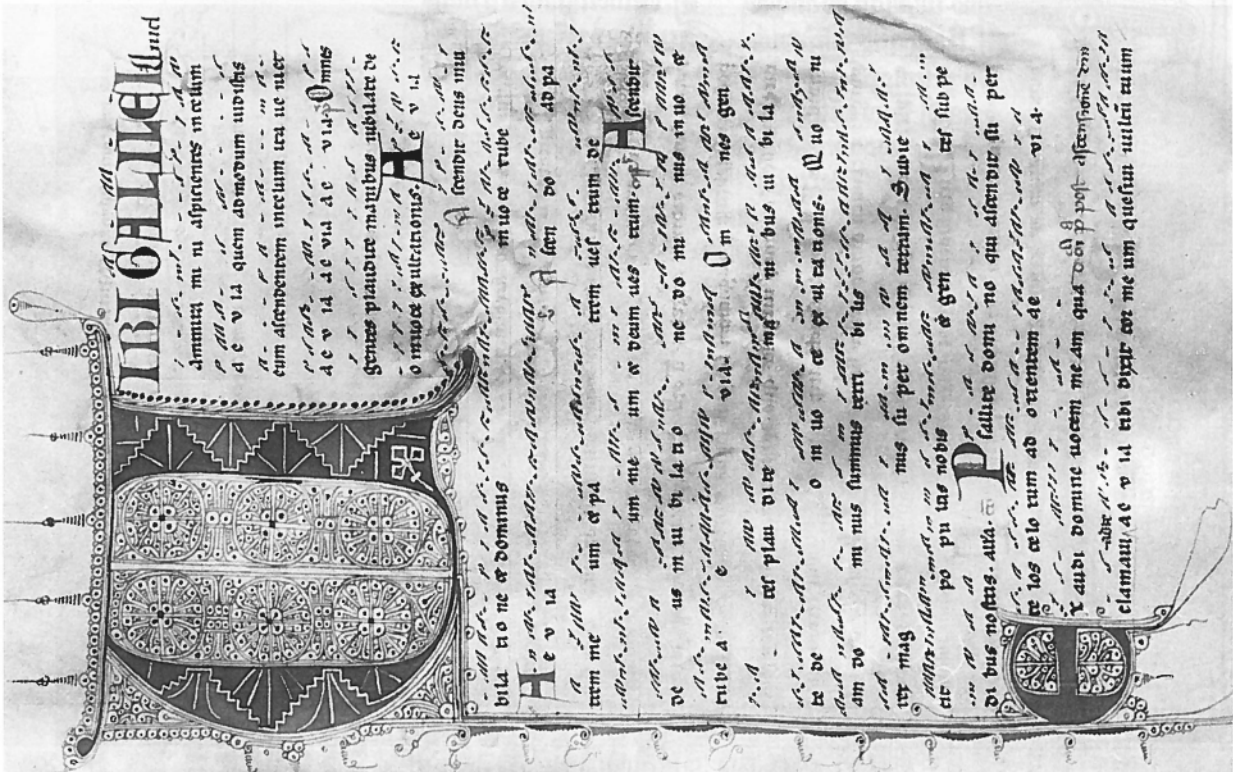 VIRI GALILEI Quid
ammira mi ni aspicientes in celum
ae v ia quem admodum vidistis
eum ascendentem in celum ita ue niet
ae v ia ae via ae via. Omnes
gentes plaudite manibus iubilate de
o in uo ce exultationis. Ae v ia
A Ascendit deus in iu
bila tio ne & dominus in uo ce tube
Ae v ia A Ascen do ad pa
trem me um & pa trem ues trum de
um me um & deum ues trum. off Ascendit
de us in iu bi la tio ne do mi nus in uo ce
tube A e via Om nes gen
tes plau di te ma ni bus iu bi la
te de o in uo ce ex ul ta tionis. Quo ni
am do mi nus summus terri bi lis
rex mag nus su per omnem terram. Subie
cit po pu los nobis & gen tes sub pe
di bus nostris. alla. co Psallite domi no qui ascendit su per
ce los ce lo rum ad orientem ae vi a.
Exaudi domine uocem meam qua post ascensione
clamaui ae v ia tibi dixit cor me um quesiui uultum tuum